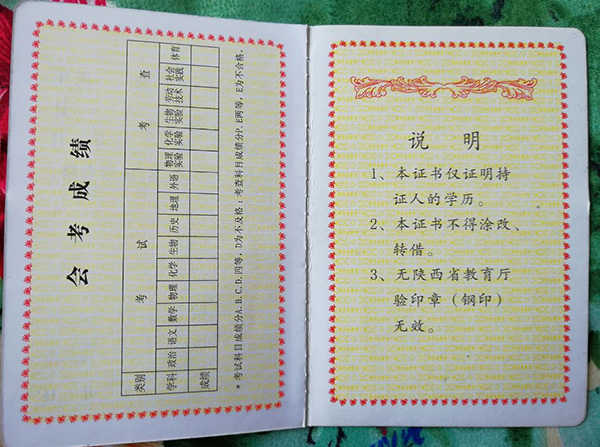 会考成绩
类别 考试 考查
学科 政治 语文 数学 物理 化学 生物 历史 地理 外语 物理实验 化学实验 生物实验 劳动技术 社会实践 体育
成绩
* 考试科目成绩分A.B.C.D.四等，D为不及格；考查科目成绩分P、E两等，E为不合格。
说 明
1、本证书仅证明持
证人的学历。
2、本证书不得涂改、
转借。
3、无陕西省教育厅
验印章（钢印）
无效。